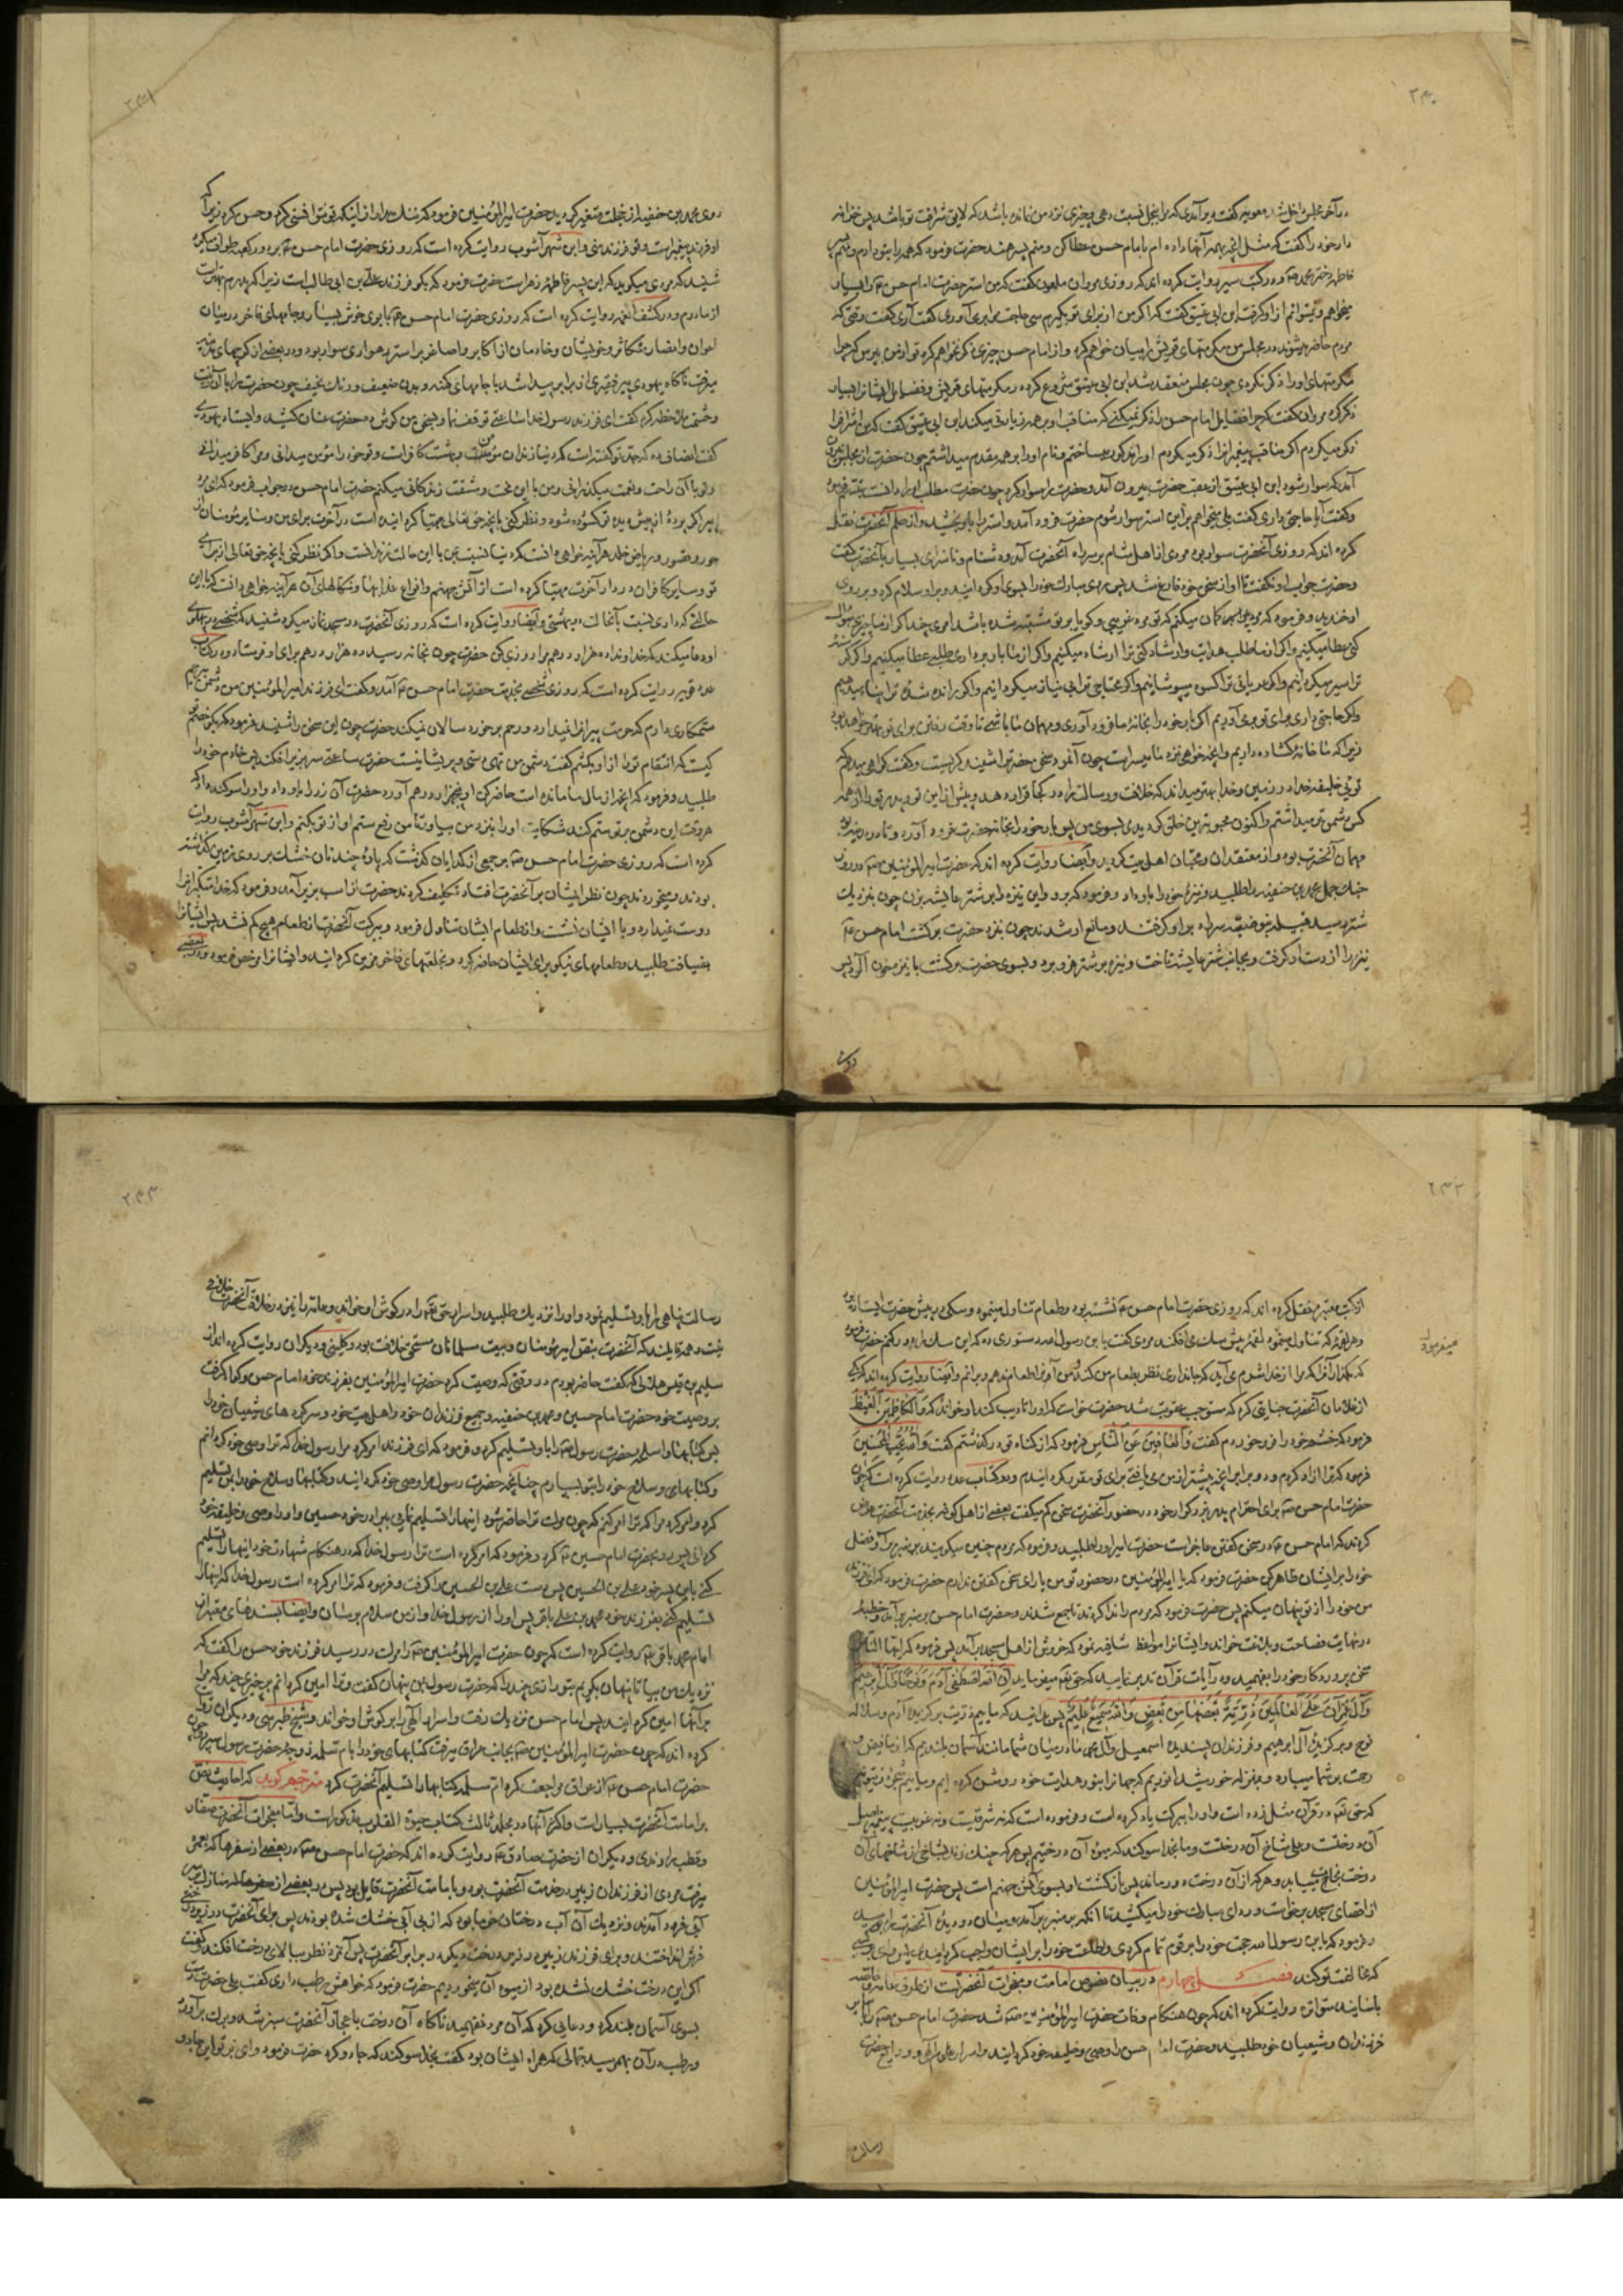 ۲۳۰
در آخر مجلس داخل شد معویه گفت دیر آمدی که مرا بخل نسبت دهی و چیزی نزد من نمانده باشد که لایق شرافت تو باشد پس خزانه
دار خود را گفت که مثل آنچه بهمه آنها داده ام بامام حسن عطا کن و منم پسر هند حضرت فرمود که همه را بتو دادم و منم پسر
فاطمه دختر محمد و در کتب سیر روایت کرده اند که روزی مروان ملعون گفت که من استر حضرت امام حسن را بسیار
میخواهم و نمیتوانم از او گرفت ابن ابی عتیق گفت که اگر من از برای تو بگیرم سی حاجت مرا بر می آوری گفت آری گفت وقتی که
مردم حاضر میشوند در مجلس من مکرمتهای قریش را بیان خواهم کرد و از امام حسن چیزی ذکر نخواهم کرد تو از من بپرس که چرا
مکرمتهای او را ذکر نکردی چون مجلس منعقد شد ابن ابی عتیق شروع کرد در مکرمتهای قریش و فضایل ایشان را بسیار
ذکر کرد مروان گفت که چرا فضایل امام حسن را ذکر نمیکنی که مناقب او بر همه زیادتی میکند ابن ابی عتیق گفت که من اشراف را
ذکر میکردم اگر مناقب پیغمبران را ذکر میکردم او را مذکور میساختم و نام او را بر همه مقدم میداشتم چون حضرت از مجلس بیرون
آمد که سوار شود ابن ابی عتیق از عقب حضرت بیرون آمد و حضرت را سوار کرد چون حضرت مطلب او را دانست تبسم فرمود
و گفت آیا حاجتی داری گفت بلی میخواهم بر این استر سوار شوم حضرت فرود آمد و استر را باو بخشید و از حلم آنحضرت نقل
کرده اند که روزی آنحضرت سوار بود مردی از اهل شام بر سر راه آنحضرت آمد و دشنام و ناسزای بسیار بآنحضرت گفت
و حضرت جواب او نگفت تا او از سخن خود فارغ شد پس روی مبارک خود را بسوی او گردانید و بر او سلام کرد و بر روی
او خندید و فرمود که ای مرد پیر گمان میکنم که تو مرد غریبی و گویا بر تو مشتبه شده باشد امری چند اگر از ما چیزی سؤال
کنی عطا میکنیم و اگر از ما طلب هدایت و ارشاد کنی ترا ارشاد میکنیم و اگر از ما باربرداری طلبی عطا میکنیم و اگر گرسنه
ترا سیر میگردانیم و اگر عریانی ترا کسوه میپوشانیم و اگر محتاجی ترا بی نیاز میگردانیم و اگر رانده شده ترا پناه میدهیم
و اگر حاجتی داری برای تو بر می آوریم اگر بار خود را بخانه ما فرود آوری و مهمان ما باشی تا وقت رفتن برای تو بهتر خواهد بود
زیرا که ما خانه گشاده داریم و آنچه خواهی نزد ما میسر است چون آنمرد سخن حضرت را شنید گریست و گفت گواهی میدهم که
توئی خلیفه خدا در زمین و خدا بهتر میداند که خلافت و رسالت را در کجا قرار دهد و پیش از این تو و پدر تو را از همه
کس دشمن تر میداشتم و اکنون محبوبترین خلق گردیدی بسوی من پس بار خود را بخانه حضرت فرود آورد و تا در مدینه بود
مهمان آنحضرت بود و از معتقدان و محبان اهل بیت گردید و ایضا روایت کرده اند که حضرت امیرالمؤمنین در روز
جنک جمل محمد بن حنفیه را طلبید و نیزه خود را باو داد و فرمود که برو و این نیزه را بر شتر عایشه بزن چون بنزدیک
شتر رسید قبیله بنو ضبه سر راه بر او گرفتند و مانع او شدند چون بنزد حضرت برگشت امام حسن
نیزه را از دست او گرفت و بجانب شتر عایشه تاخت و نیزه بر شتر فرو برد و بسوی حضرت برگشت با نیزه خون آلود پس
روی
۲۳۱
روی محمد بن حنفیه از خجلت متغیر گردید حضرت امیرالمؤمنین فرمود که ننک مدار از اینکه تو نتوانستی کرد و حسن کرد زیرا که
او فرزند پیغمبر است و تو فرزند منی و ابن شهرآشوب روایت کرده است که روزی حضرت امام حسن بر دور کعبه طواف میکرد
شنید که مردی میگوید که این پسر فاطمه زهراست حضرت فرمود که بگو فرزند علی بن ابی طالب است زیرا که پدرم بهتر است
از مادرم و در کشف الغمه روایت کرده است که روزی حضرت امام حسن با بوی خوش بسیار و جامهای فاخر در میان
اعوان و انصار متکاثر و خویشان و خادمان از اکابر و اصاغر بر استر رهواری سوار بود و در بعضی از کوچهای مدینه
میرفت ناگاه یهودی پیر فقیری از برابر پیدا شد با جامهای کهنه و بدن ضعیف و رنک نحیف چون حضرت را با آن زینت
و حشمت ملاحظه کرد گفت ای فرزند رسول خدا ساعتی توقف نما و سخنی من گوش ده حضرت عنان کشید و ایستاد یهودی
گفت انصاف ده که جد تو گفته است که دنیا زندان مؤمن است و بهشت کافر است و تو خود را مؤمن میدانی و مرا کافر میدانی
و تو با آن راحت و نعمت میگذرانی و من با این محنت و مشقت زندگانی میکنم حضرت امام حسن در جواب فرمود که ای مرد
پیر اگر پرده از پیش دیده تو گشوده شود و نظر کنی بآنچه حق تعالی مهیا کرده است در آخرت برای من و سایر مؤمنان از
حور و قصور در ریاض خلد هرآینه خواهی دانست که دنیا نسبت بمن با این حالت زندانست و اگر نظر کنی بآنچه حق تعالی از برای
تو و سایر کافران در دار آخرت مهیا کرده است از آتش جهنم و انواع عذابها و نکالهای آن هرآینه خواهی دانست که با این
حالتی که داری نسبت بآنحالت در بهشتی و ایضا روایت کرده است که روزی آنحضرت در مسجد نماز میکرد شنید که شخصی در پهلوی
او دعا میکند که خداوندا ده هزار درهم مرا روزی کن حضرت چون بخانه رسید ده هزار درهم برای او فرستاد و در کتاب
عدد قویه روایت کرده است که روزی شخصی بخدمت حضرت امام حسن آمد و گفت ای فرزند امیرالمؤمنین من دشمن
ستمکاری دارم که حرمت پیران نمیدارد و رحم بر خورد سالان نمیکند حضرت چون این سخن را شنید فرمود که بگو خصم تو
کیست که انتقام ترا از او بکشم گفت دشمن من تهی دستی و پریشانیست حضرت ساعتی سر بزیر افکند پس خادم خود را
طلبید و فرمود که آنچه از مال ما مانده است حاضر کن او پنجهزار درهم آورد حضرت آن زر را باو داد و او را سوگند داد که
هر وقت این دشمن بر تو ستم کند شکایت او را بنزد من بیاور تا من رفع ستم او از تو بکنم و ابن شهرآشوب روایت
کرده است که روزی حضرت امام حسن بر جمعی از گدایان گذشت که پاره چند نان خشک بر روی زمین گذاشته
بودند و میخوردند چون نظر ایشان بر آنحضرت افتاد تکلیف کردند حضرت از اسب بزیر آمد و فرمود که خدا متکبران را
دوست نمیدارد و با ایشان نشست و از طعام ایشان تناول فرمود و ببرکت آنحضرت از طعام هیچ کم نشد پس ایشان را
بضیافت طلبید و طعامهای نیکو برای ایشان حاضر کرد و بخلعتهای فاخر مزین گردانید و ایشان را مرخص فرمود و در بعضی
۲۳۲
از کتب معتبره نقل کرده اند که روزی حضرت امام حسن نشسته بود و طعام تناول مینمود و سگی در پیش حضرت ایستاده بود
و هر لقمه که تناول مینمود لقمه پیش سک می افکند مردی گفت یا بن رسول الله دستوری ده که این سک را دور کنم حضرت فرمود
میفرمود
که بگذار او را که من از خدا شرم می آید که جانداری نظر بطعام من کند و من او را طعام ندهم و برانم و ایضا روایت کرده اند که یکی
از غلامان آنحضرت جنایتی کرد که مستوجب عقوبت شد حضرت خواست که او را تادیب کند او خواند که وَالْکَاظِمِینَ الْغَیْظَ
فرمود که خشم خود را فرو خوردم گفت وَالْعَافِینَ عَنِ النَّاسِ فرمود که از گناه تو در گذشتم گفت وَاللّٰهُ یُحِبُّ الْمُحْسِنِینَ
فرمود که ترا آزاد کردم و دو برابر آنچه پیشتر از من می یافتی برای تو مقرر گردانیدم و در کتاب عدد روایت کرده است که چون
حضرت امام حسن برای احترام پدر بزرگوار خود در حضور آنحضرت سخن کم میگفت بعضی از اهل کوفه بخدمت آنحضرت عرض
کردند که امام حسن در سخن گفتن عاجز است حضرت امیر او را طلبید و فرمود که مردم چنین میگویند بر منبر برآ و فضل
خود را بر ایشان ظاهر کن حضرت فرمود که یا امیرالمؤمنین در حضور تو من یارای سخن گفتن ندارم حضرت فرمود که ای فرزند
من خود را از تو پنهان میکنم پس حضرت فرمود که مردم را ندا کردند تا جمع شدند و حضرت امام حسن بر منبر بر آمد و خطبه
در نهایت فصاحت و بلاغت خواند و ایشان را مواعظ شافیه نمود که خروش از اهل مسجد بر آمد پس فرمود که ایها الناس
سخن پروردگار خود را بفهمید و در آیات قرآن تدبر نمایید که حق تعالی میفرماید اِنَّ اللّٰهَ اصْطَفٰی آدَمَ وَنُوحًا وَآلَ اِبْرٰهِیمَ
وَآلَ عِمْرَانَ عَلَی الْعَالَمِینَ ذُرِّیَّةً بَعْضُهَا مِنْ بَعْضٍ وَاللّٰهُ سَمِیعٌ عَلِیمٌ پس بدانید که ماییم ذریت برگزیده آدم و سلاله
نوح و برگزیده آل ابرهیم و فرزندان پسندیده اسمعیل و آل محمد ما در میان شما مانند آسمان بلندیم که از ما فیض و
رحمت بر شما میبارد و بمنزله خورشید انوریم که جهان را بنور هدایت خود روشن کرده ایم و ماییم شجره زیتونه
که حق تعالی در قرآن مثل زده است و او را ببرکت یاد کرده است و فرموده است که نه شرقیست و نه غربیست پیغمبر اصل
آن درختست و علی شاخ آن درختست و ما بخدا سوگند که میوه آن درختیم پس هر که چنک زند بشاخی از شاخهای آن
درخت نجات مییابد و هر که از آن درخت دور ماند پس بازگشت او بسوی آتش جهنم است پس حضرت امیرالمؤمنین
از اقصای مسجد برخواست و ردای مبارک خود را میکشید تا آنکه بر منبر بر آمد و میان دو دیده آنحضرت را بوسید
و فرمود که ای بن رسول الله حجت خود را بر قوم تمام کردی و اطاعت خود را بر ایشان واجب گردانیدی پس وای بر کسی
که مخالفت تو کند فصل چهارم در بیان نصوص امامت و معجزات آنحضرتست از طرق عامه و خاصه
باسانید متواتره روایت کرده اند که چون هنگام وفات حضرت امیرالمؤمنین شد حضرت امام حسن را با سایر
فرزندان و شیعیان خود طلبید و حضرت امام حسن را وصی و خلیفه خود گردانید و اسرار علوم الهی و ودایع حضرت
رسالت
۲۳۳
رسالت پناهی را باو تسلیم نمود و او را نزدیک طلبید و اسرار حق تعالی را در گوش او خواند و عامه را نیز در خلافت آنحضرت خلافی
نیست و همه قایلند که آنحضرت بنص امیرمؤمنان و بیعت مسلمانان مستحق خلافت بود و کلینی و دیگران روایت کرده اند از
سلیم بن قیس هلالی که گفت حاضر بودم در وقتی که وصیت کرد حضرت امیرالمؤمنین بفرزند خود امام حسن و گواه گرفت
بر وصیت خود حضرت امام حسین و محمد بن حنفیه و جمیع فرزندان خود و اهل بیت خود و سرکرده های شیعیان خود را
پس کتابها و اسلحه حضرت رسول را باو تسلیم کرد و فرمود که ای فرزند امر کرد مرا رسول خدا که ترا وصی خود گردانم
و کتابهای و سلاح خود را بتو بسپارم چنانچه حضرت رسول مرا وصی خود گردانید و کتابها و سلاح خود را بمن تسلیم
کرد و امر کرد مرا که ترا امر کنم که چون مرک ترا حاضر شود اینها را تسلیم نمایی ببرادر خود حسین و او را وصی و خلیفه خود
گردانی پس رو بحضرت امام حسین کرد و فرمود که امر کرده است ترا رسول خدا که در هنگام شهادت خود اینها را تسلیم
کنی باین پسر خود علی بن الحسین پس دست علی بن الحسین را گرفت و فرمود که ترا امر کرده است رسول خدا که اینها را
تسلیم کنی بفرزند خود محمد بن علی باقر پس او را از رسول خدا و از من سلام برسان و ایضا بسندهای معتبر از
امام محمد باقر روایت کرده است که چون حضرت امیرالمؤمنین را مرک در رسید فرزند خود حسن را گفت که
نزدیک من بیا تا پنهان بگویم بتو رازی چند را که حضرت رسول بمن پنهان گفت و ترا امین گردانم بر چیزی چند که مرا
بر آنها امین گردانید پس امام حسن نزدیک رفت و اسرار الهی را بر گوش او خواند و شیخ طبرسی و دیگران روایت
کرده اند که چون حضرت امیرالمؤمنین بجانب عراق میرفت کتابهای خود را بام سلمه زوجه حضرت رسول سپرد چون
حضرت امام حسن از عراق مراجعت کرد ام سلمه کتابها را تسلیم آنحضرت کرد مترجم گوید که احادیث نص
بر امامت آنحضرت بسیار است و اکثر آنها در مجلد ثالث کتاب حیوة القلوب مذکور است و اما معجزات آنحضرت صفار
و قطب راوندی و دیگران از حضرت صادق روایت کرده اند که حضرت امام حسن در بعضی از سفرها که بعمره
میرفت مردی از فرزندان زبیر در خدمت آنحضرت بود و بامامت آنحضرت قایل بود پس در بعضی از منزلها بر سر
آبی فرود آمدند و نزدیک آن آب درختان خرما بود که از بی آبی خشک شده بودند پس برای آنحضرت در زیر درختی
فرش انداختند و برای فرزند زبیر در زیر درخت دیگر در برابر آنحضرت پس آنمرد نظر ببالای درخت افکند و گفت
اگر این درخت خشک نشده بود از میوه آن میخوردیم حضرت فرمود که خواهش رطب داری گفت بلی حضرت دست
بسوی آسمان بلند کرد و دعایی کرد که آن مرد نفهمید ناگاه آن درخت باعجاز آنحضرت سبز شد و برک برآورد
و رطب در آن بهم رسید جمالی که همراه ایشان بود گفت بخدا سوگند که جادو کرد حضرت فرمود وای بر تو این جادو